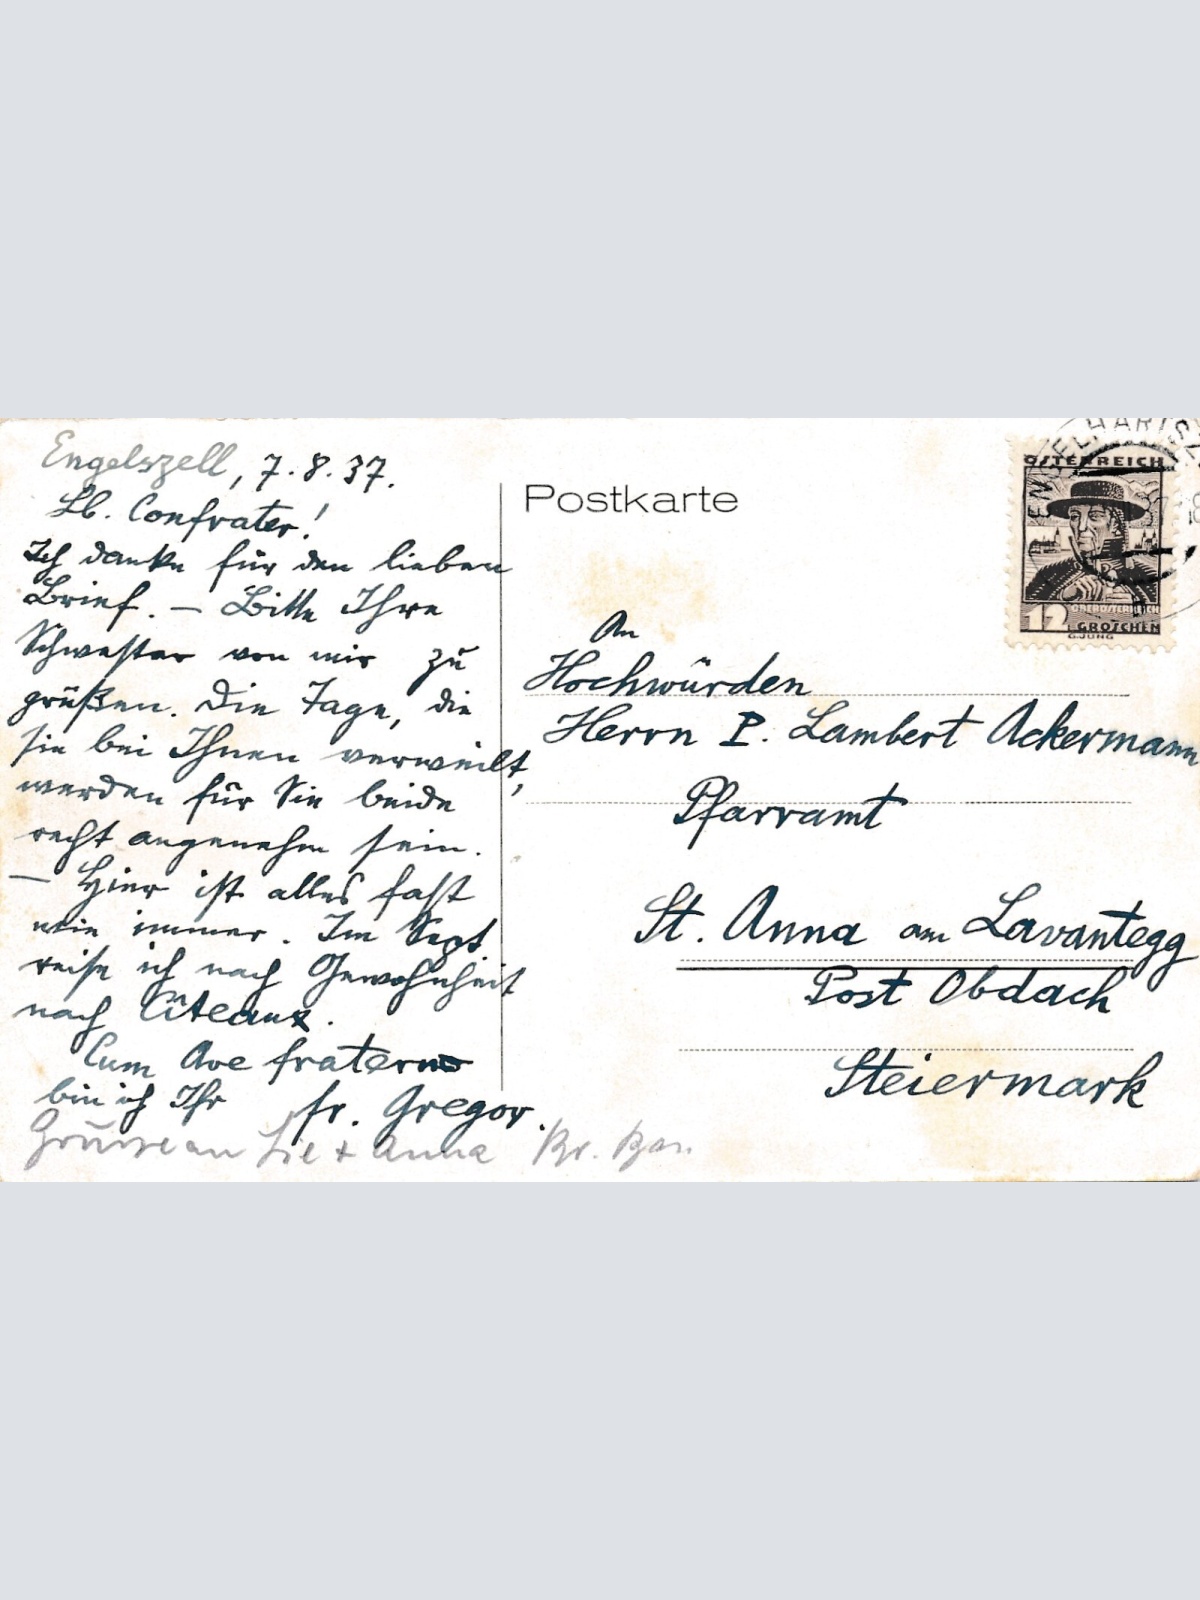 Engelszell, 7.8.37.
Lb. Confrater!
Ich danke für den lieben
Brief. – Bitte Ihre
Schwester von mir zu
grüßen. Die Tage, die
sie bei Ihnen verweilt,
werden für Sie beide
recht angenehm sein.
– Hier ist alles fast
wie immer. Im Sept.
reise ich nach Gewohnheit
nach Cîteaux.
Cum Ave fraterno
bin ich Ihr fr. Gregor.
an + Anna Br.
Postkarte
ÖSTERREICH
12 GROSCHEN
OBERÖSTERREICH
G.JUNG
An
Hochwürden
Herrn P. Lambert Ackermann
Pfarramt
St. Anna am Lavantegg
Post Obdach
Steiermark